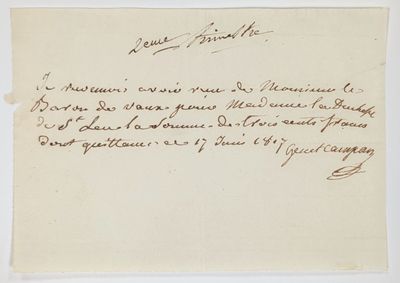 2eme trimestre
Je reconnois avoir reçu de Monsieur le
Baron de vaux pour Madame la Duchesse
de St Leu la Somme de trois cents francs
dont quittance ce 17 Juin 1817 genet campan